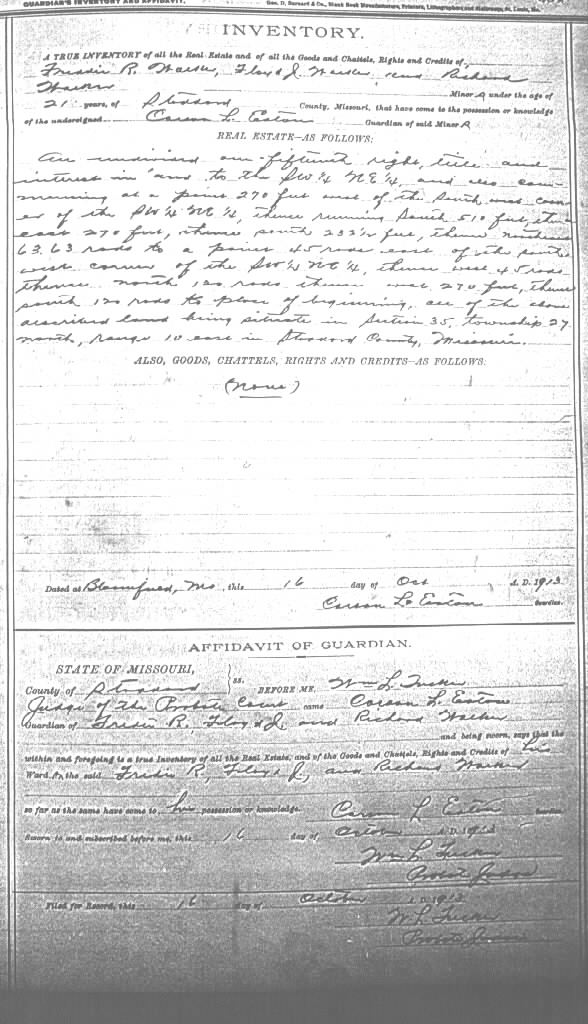 GUARDIAN'S INVENTORY AND AFFIDAVIT.
Geo. D. Barnard & Co., Blank Book Manufacturers, Printers, Lithographers and Stationers, St. Louis, Mo.
INVENTORY.
A TRUE INVENTORY of all the Real Estate and of all the Goods and Chattels, Rights and Credits of,
Freddie R. Walker, Floyd J. Walker and Richard
Walker Minors under the age of
21 years, of Stoddard County, Missouri, that have come to the possession or knowledge
of the undersigned Carson L. Easton Guardian of said Minors
REAL ESTATE—AS FOLLOWS:
An undivided one-fifteenth right, title and
interest in and to the SW¼ NE¼, and also com-
mencing at a point 270 feet west of the South west corn-
er of the SW¼ NE¼, thence running South 510 feet, thence
east 270 feet, thence south 233½ feet, thence northeast
63.63 rods to a point 45 rods east of the south
west corner of the SW¼ NE¼, thence west 45 rods
thence north 120 rods thence west 270 feet, thence
south 120 rods to place of beginning, all of the above
described land being situate in Section 35, township 27
north, range 10 east in Stoddard County, Missouri.
ALSO, GOODS, CHATTELS, RIGHTS AND CREDITS—AS FOLLOWS:
(None)
Dated at Bloomfield, Mo, this 16 day of Oct A. D. 1913.
Carson L. Easton Guardian.
AFFIDAVIT OF GUARDIAN.
STATE OF MISSOURI,
County of Stoddard ss. BEFORE ME, Wm L. Tucker
Judge of the Probate Court came Carson L. Easton
Guardian of Fredie R, Floyd J, and Richard Walker
and being sworn, says that the
within and foregoing is a true Inventory of all the Real Estate, and of the Goods and Chattels, Rights and Credits of his
Wards the said Fredie R, Floyd J., and Richard Walker
so far as the same have come to his possession or knowledge. Carson L. Easton Guardian
Sworn to and subscribed before me, this 16 day of October A. D. 1913
Wm L. Tucker
Probate Judge
Filed for Record, this 16 day of October A. D. 1913
W. L. Tucker
Probate Judge